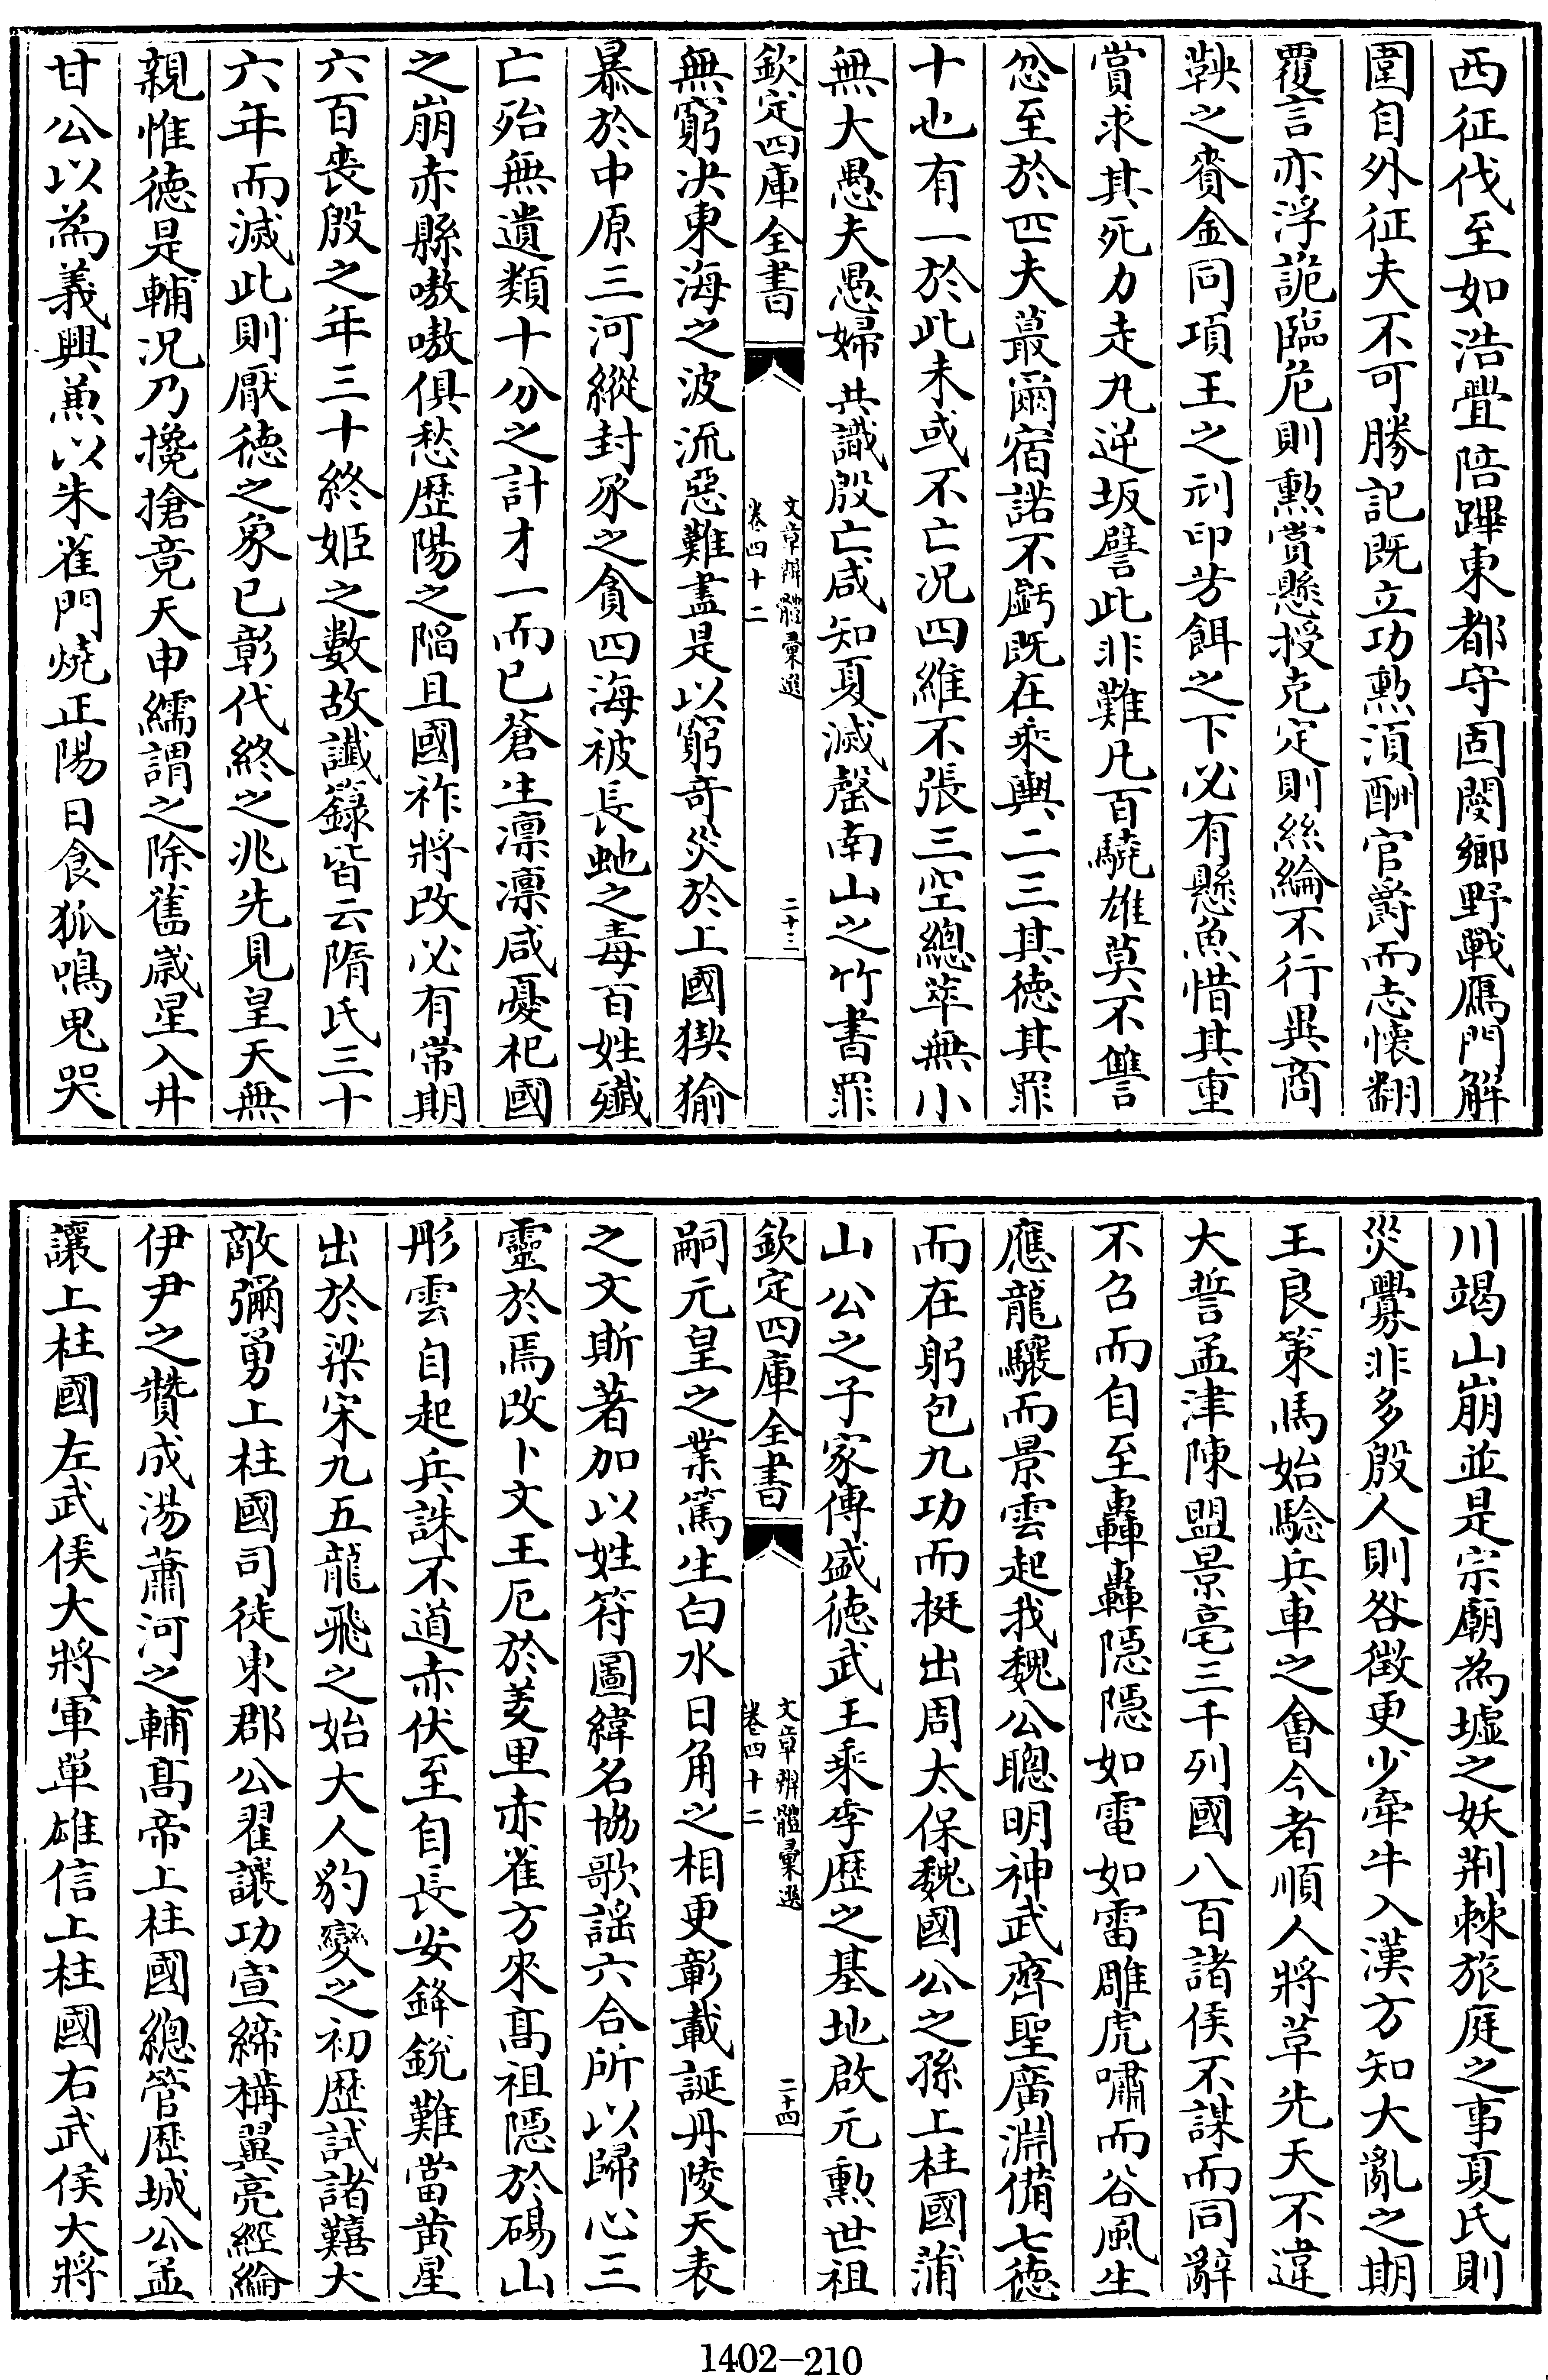 西征伐至如浩亹陪蹕東都守固閿鄉野戰鴈門解
圍自外征夫不可勝記既立功勲湏酬官爵而志懐翻
覆言亦浮詭臨危則勲賞懸授克定則絲綸不行異商
鞅之賚金同項王之刓印芳餌之下必有懸魚惜其重
賞求其死力走丸逆坂譬此非難凡百驍雄莫不讐
怨至於匹夫蕞爾宿諾不虧既在乘輿二三其徳其罪
十也有一於此未或不亡况四維不張三空總萃無小
無大愚夫愚婦共識殷亡咸知夏滅罄南山之竹書罪
欽定四庫全書
文章辨體彚選
卷四十二
二十三
無窮决東海之波流惡難盡是以窮竒災於上國猰㺄
暴於中原三河縱封豕之貪四海被長虵之毒百姓殲
亡殆無遺類十分之計才一而已蒼生凛凛咸憂杞國
之崩赤縣嗷嗷俱愁歴陽之陷且國祚將改必有常期
六百喪殷之年三十終姬之數故讖籙皆云隋氏三十
六年而滅此則厭徳之象已彰代終之兆先見皇天無
親惟徳是輔况乃攙搶竟天申繻謂之除舊歲星入井
甘公以為義興兼以朱雀門燒正陽日食狐鳴鬼哭
川竭山崩並是宗廟為墟之妖荆棘旅庭之事夏氏則
災釁非多殷人則咎徴更少牽牛入漢方知大亂之期
王良策馬始騐兵車之會今者順人將革先天不違
大誓孟津陳盟景亳三千列國八百諸侯不謀而同辭
不召而自至轟轟隠隠如電如雷雕虎嘯而谷風生
應龍驤而景雲起我魏公聰明神武齊聖廣淵備七徳
而在躬包九功而挺出周太保魏國公之孫上柱國蒲
山公之子家傳盛徳武王乘季歴之基地啟元勲世祖
欽定四庫全書
文章辨體彚選
卷四十二
二十四
嗣元皇之業篤生白水日角之相更彰載誕丹陵天表
之文斯著加以姓符圖緯名協歌謡六合所以歸心三
靈於焉改卜文王厄於羑里赤雀方來髙祖隠於碭山
彤雲自起兵誅不道赤伏至自長安鋒銳難當黄星
出於梁宋九五龍飛之始大人豹變之初歴試諸囏大
敵彌勇上柱國司徒東郡公翟讓功宣締構翼亮經綸
伊尹之贊成湯蕭河之輔髙帝上柱國總管歴城公孟
讓上柱國左武侯大將軍單雄信上柱國右武侯大將
1402-210